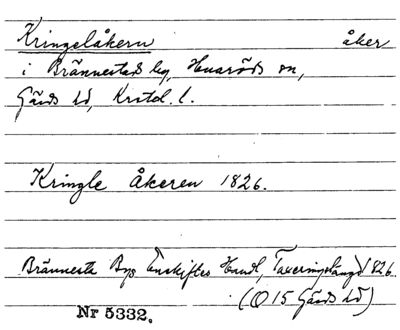 Kringelåkern åker
i Brännestad by, Huaröds sn,
Gärds hd, Krstd. l.
Kringle Åkeren 1826.
Bränneste Bys Enskiftes Handl, Taxeringslängd 1826
(Q 15 Gärds hd)
Nr 5332.